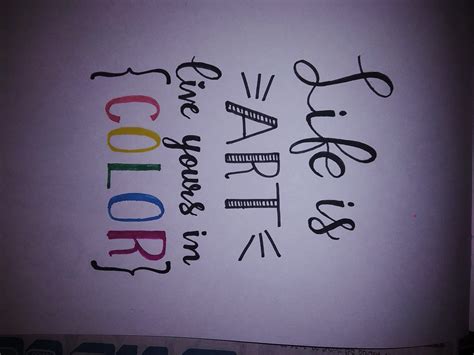 Life is
ART
live yours in
{COLOR}